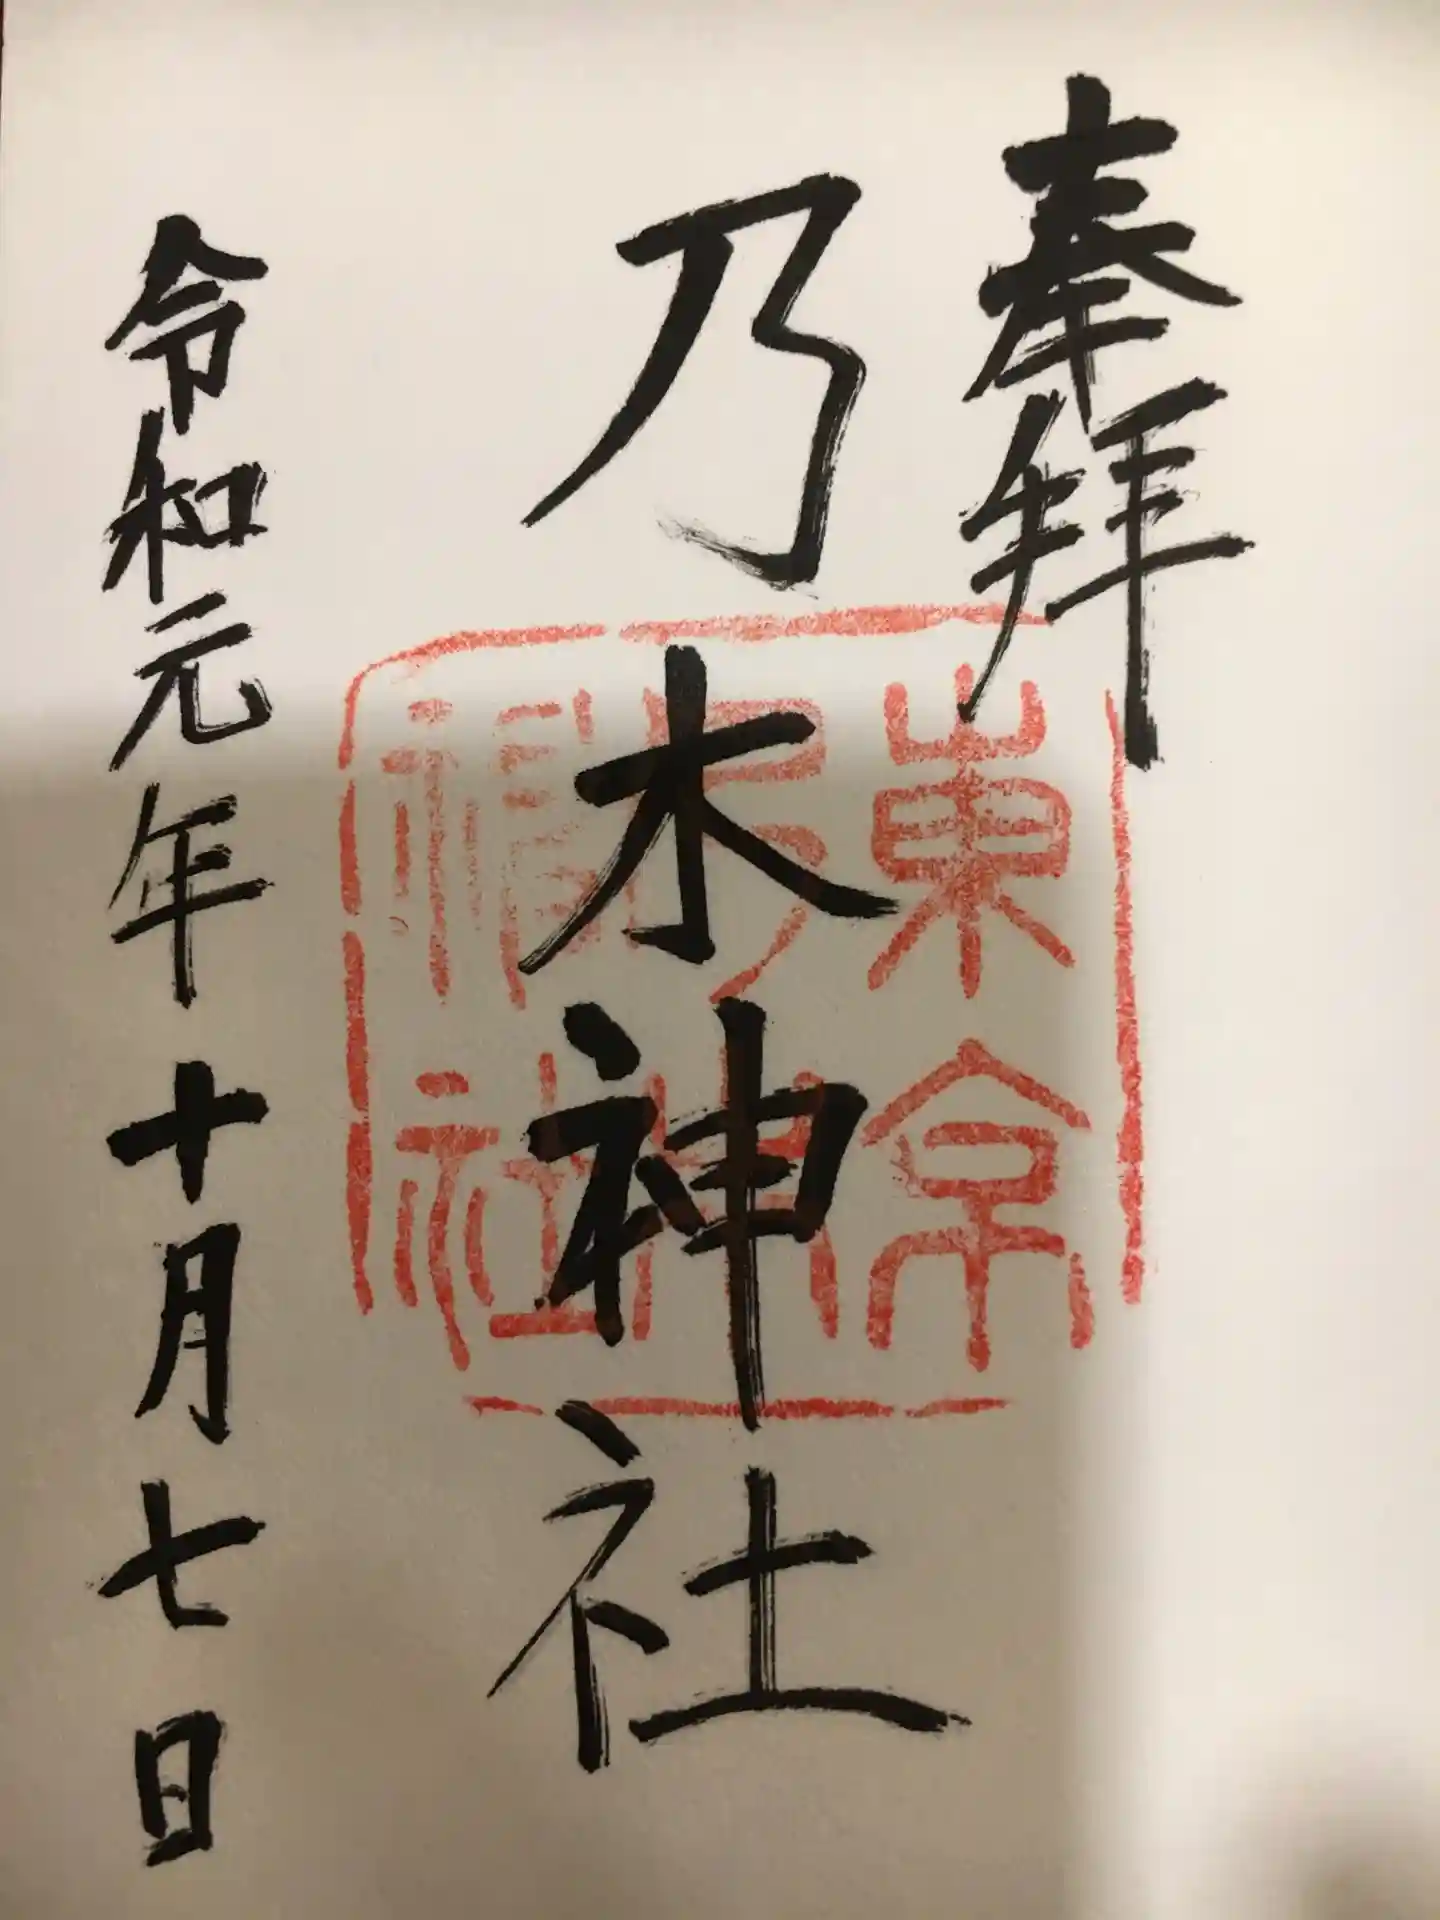 奉拝
乃木神社
東京
乃木
神社
令和元年十月七日